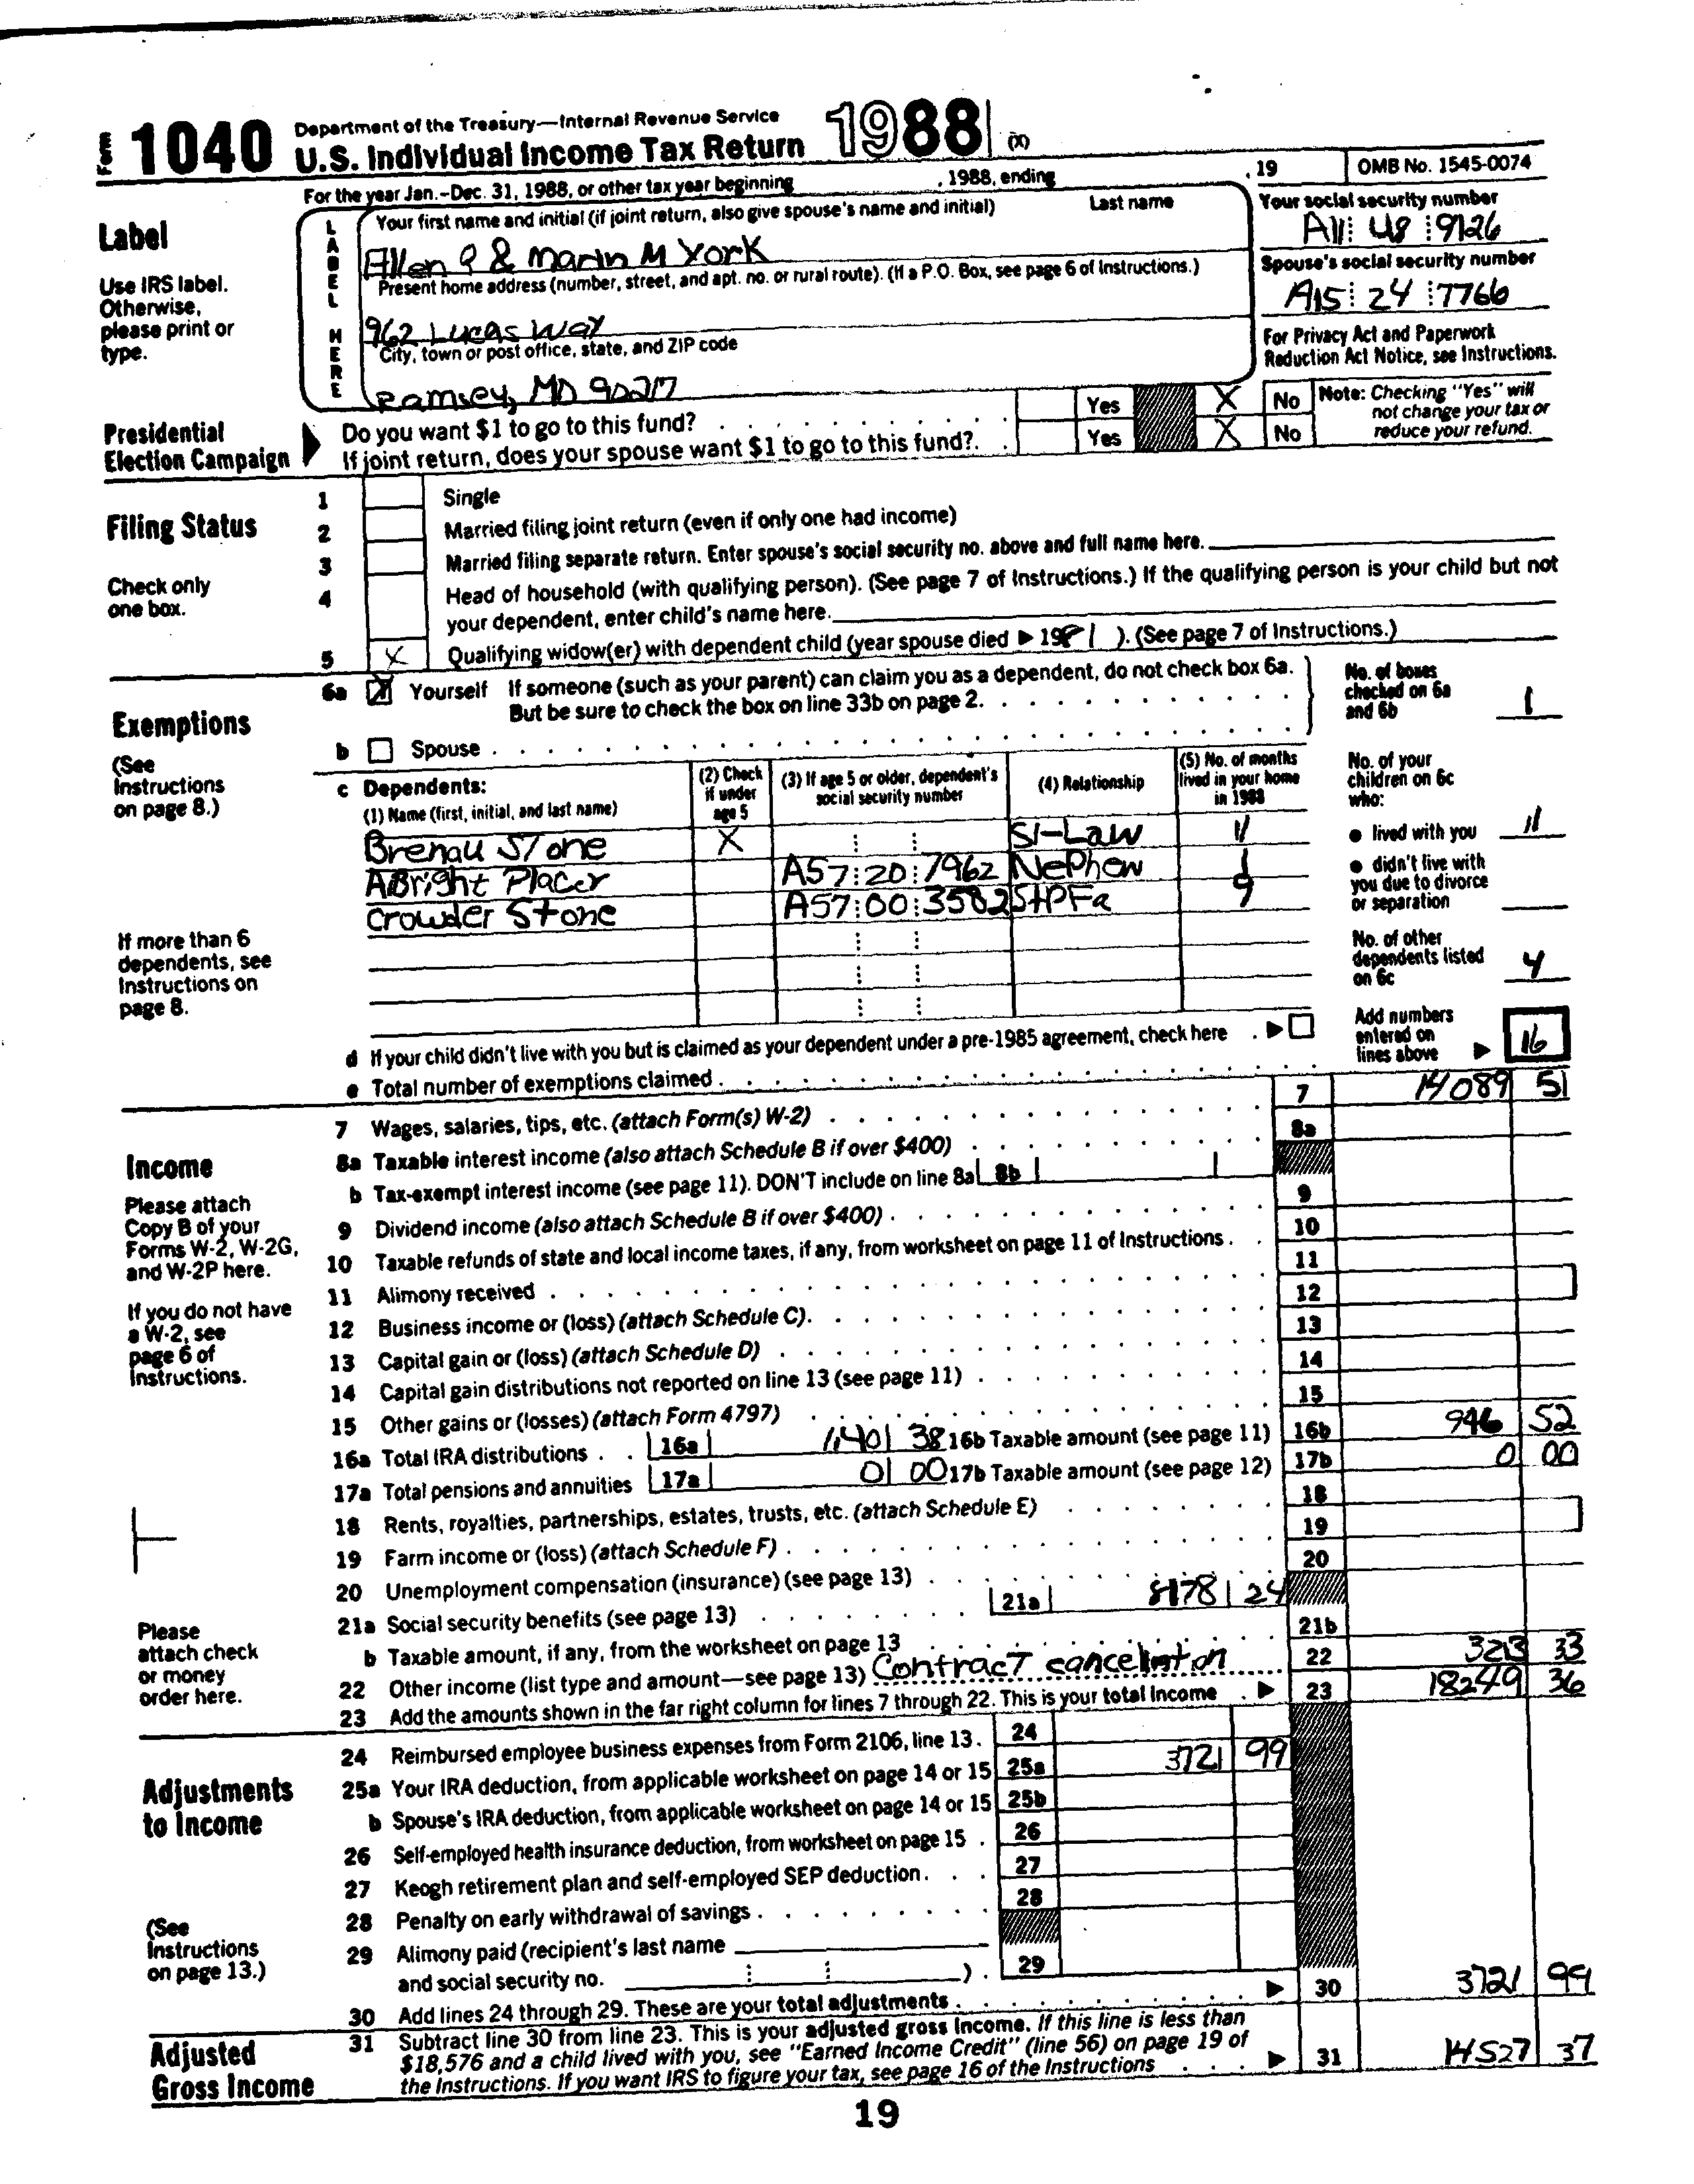 Form 1040 Department of the Treasury—Internal Revenue Service
U.S. Individual Income Tax Return 1988 (X)
For the year Jan.-Dec. 31, 1988, or other tax year beginning , 1988, ending , 19 OMB No. 1545-0074
Label
Use IRS label.
Otherwise,
please print or
type.
LABEL HERE
Your first name and initial (if joint return, also give spouse's name and initial) Last name
Allen & Marin M York
Your social security number
A11 48 9126
Present home address (number, street, and apt. no. or rural route). (If a P.O. Box, see page 6 of Instructions.)
962 Lucas Way
Spouse's social security number
A15 24 7766
City, town or post office, state, and ZIP code
Ramsey, MD 90217
For Privacy Act and Paperwork
Reduction Act Notice, see Instructions.
Presidential
Election Campaign
Do you want $1 to go to this fund? Yes X No
If joint return, does your spouse want $1 to go to this fund? Yes X No
Note: Checking "Yes" will
not change your tax or
reduce your refund.
Filing Status
Check only
one box.
1 Single
2 Married filing joint return (even if only one had income)
3 Married filing separate return. Enter spouse's social security no. above and full name here.
4 Head of household (with qualifying person). (See page 7 of Instructions.) If the qualifying person is your child but not
your dependent, enter child's name here.
5 X Qualifying widow(er) with dependent child (year spouse died ▶ 1981 ). (See page 7 of Instructions.)
Exemptions
(See
Instructions
on page 8.)
6a X Yourself If someone (such as your parent) can claim you as a dependent, do not check box 6a.
But be sure to check the box on line 33b on page 2.
b Spouse
No. of boxes
checked on 6a
and 6b 1
c Dependents:
(1) Name (first, initial, and last name)
(2) Check
if under
age 5
(3) If age 5 or older, dependent's
social security number
(4) Relationship
(5) No. of months
lived in your home
in 1988
Brenau Stone X SI-Law 11
ABright Placer A57 20 7962 Nephew 1
Crowder Stone A57 00 3582 StPFa 9
No. of your
children on 6c
who:
● lived with you 11
● didn't live with
you due to divorce
or separation
No. of other
dependents listed
on 6c 4
If more than 6
dependents, see
Instructions on
page 8.
d If your child didn't live with you but is claimed as your dependent under a pre-1985 agreement, check here
e Total number of exemptions claimed
Add numbers
entered on
lines above ▶ 16
Income
Please attach
Copy B of your
Forms W-2, W-2G,
and W-2P here.
If you do not have
a W-2, see
page 6 of
Instructions.
7 Wages, salaries, tips, etc. (attach Form(s) W-2) 7 14089 51
8a Taxable interest income (also attach Schedule B if over $400) 8a
b Tax-exempt interest income (see page 11). DON'T include on line 8a 8b
9 Dividend income (also attach Schedule B if over $400) 9
10 Taxable refunds of state and local income taxes, if any, from worksheet on page 11 of Instructions 10
11 Alimony received 11
12 Business income or (loss) (attach Schedule C) 12
13 Capital gain or (loss) (attach Schedule D) 13
14 Capital gain distributions not reported on line 13 (see page 11) 14
15 Other gains or (losses) (attach Form 4797) 15
16a Total IRA distributions 16a 1,401 38 16b Taxable amount (see page 11) 16b 946 52
17a Total pensions and annuities 17a 0 00 17b Taxable amount (see page 12) 17b 0 00
18 Rents, royalties, partnerships, estates, trusts, etc. (attach Schedule E) 18
19 Farm income or (loss) (attach Schedule F) 19
20 Unemployment compensation (insurance) (see page 13) 20
21a Social security benefits (see page 13) 21a 8178 24
b Taxable amount, if any, from the worksheet on page 13 21b
22 Other income (list type and amount—see page 13) Contract cancelintion 22 3213 33
23 Add the amounts shown in the far right column for lines 7 through 22. This is your total income ▶ 23 18249 36
Please
attach check
or money
order here.
Adjustments
to Income
(See
Instructions
on page 13.)
24 Reimbursed employee business expenses from Form 2106, line 13. 24
25a Your IRA deduction, from applicable worksheet on page 14 or 15 25a 3721 99
b Spouse's IRA deduction, from applicable worksheet on page 14 or 15 25b
26 Self-employed health insurance deduction, from worksheet on page 15 26
27 Keogh retirement plan and self-employed SEP deduction 27
28 Penalty on early withdrawal of savings 28
29 Alimony paid (recipient's last name
and social security no. ) 29
30 Add lines 24 through 29. These are your total adjustments ▶ 30 3721 99
Adjusted
Gross Income
31 Subtract line 30 from line 23. This is your adjusted gross income. If this line is less than
$18,576 and a child lived with you, see "Earned Income Credit" (line 56) on page 19 of
the Instructions. If you want IRS to figure your tax, see page 16 of the Instructions ▶ 31 14527 37
19